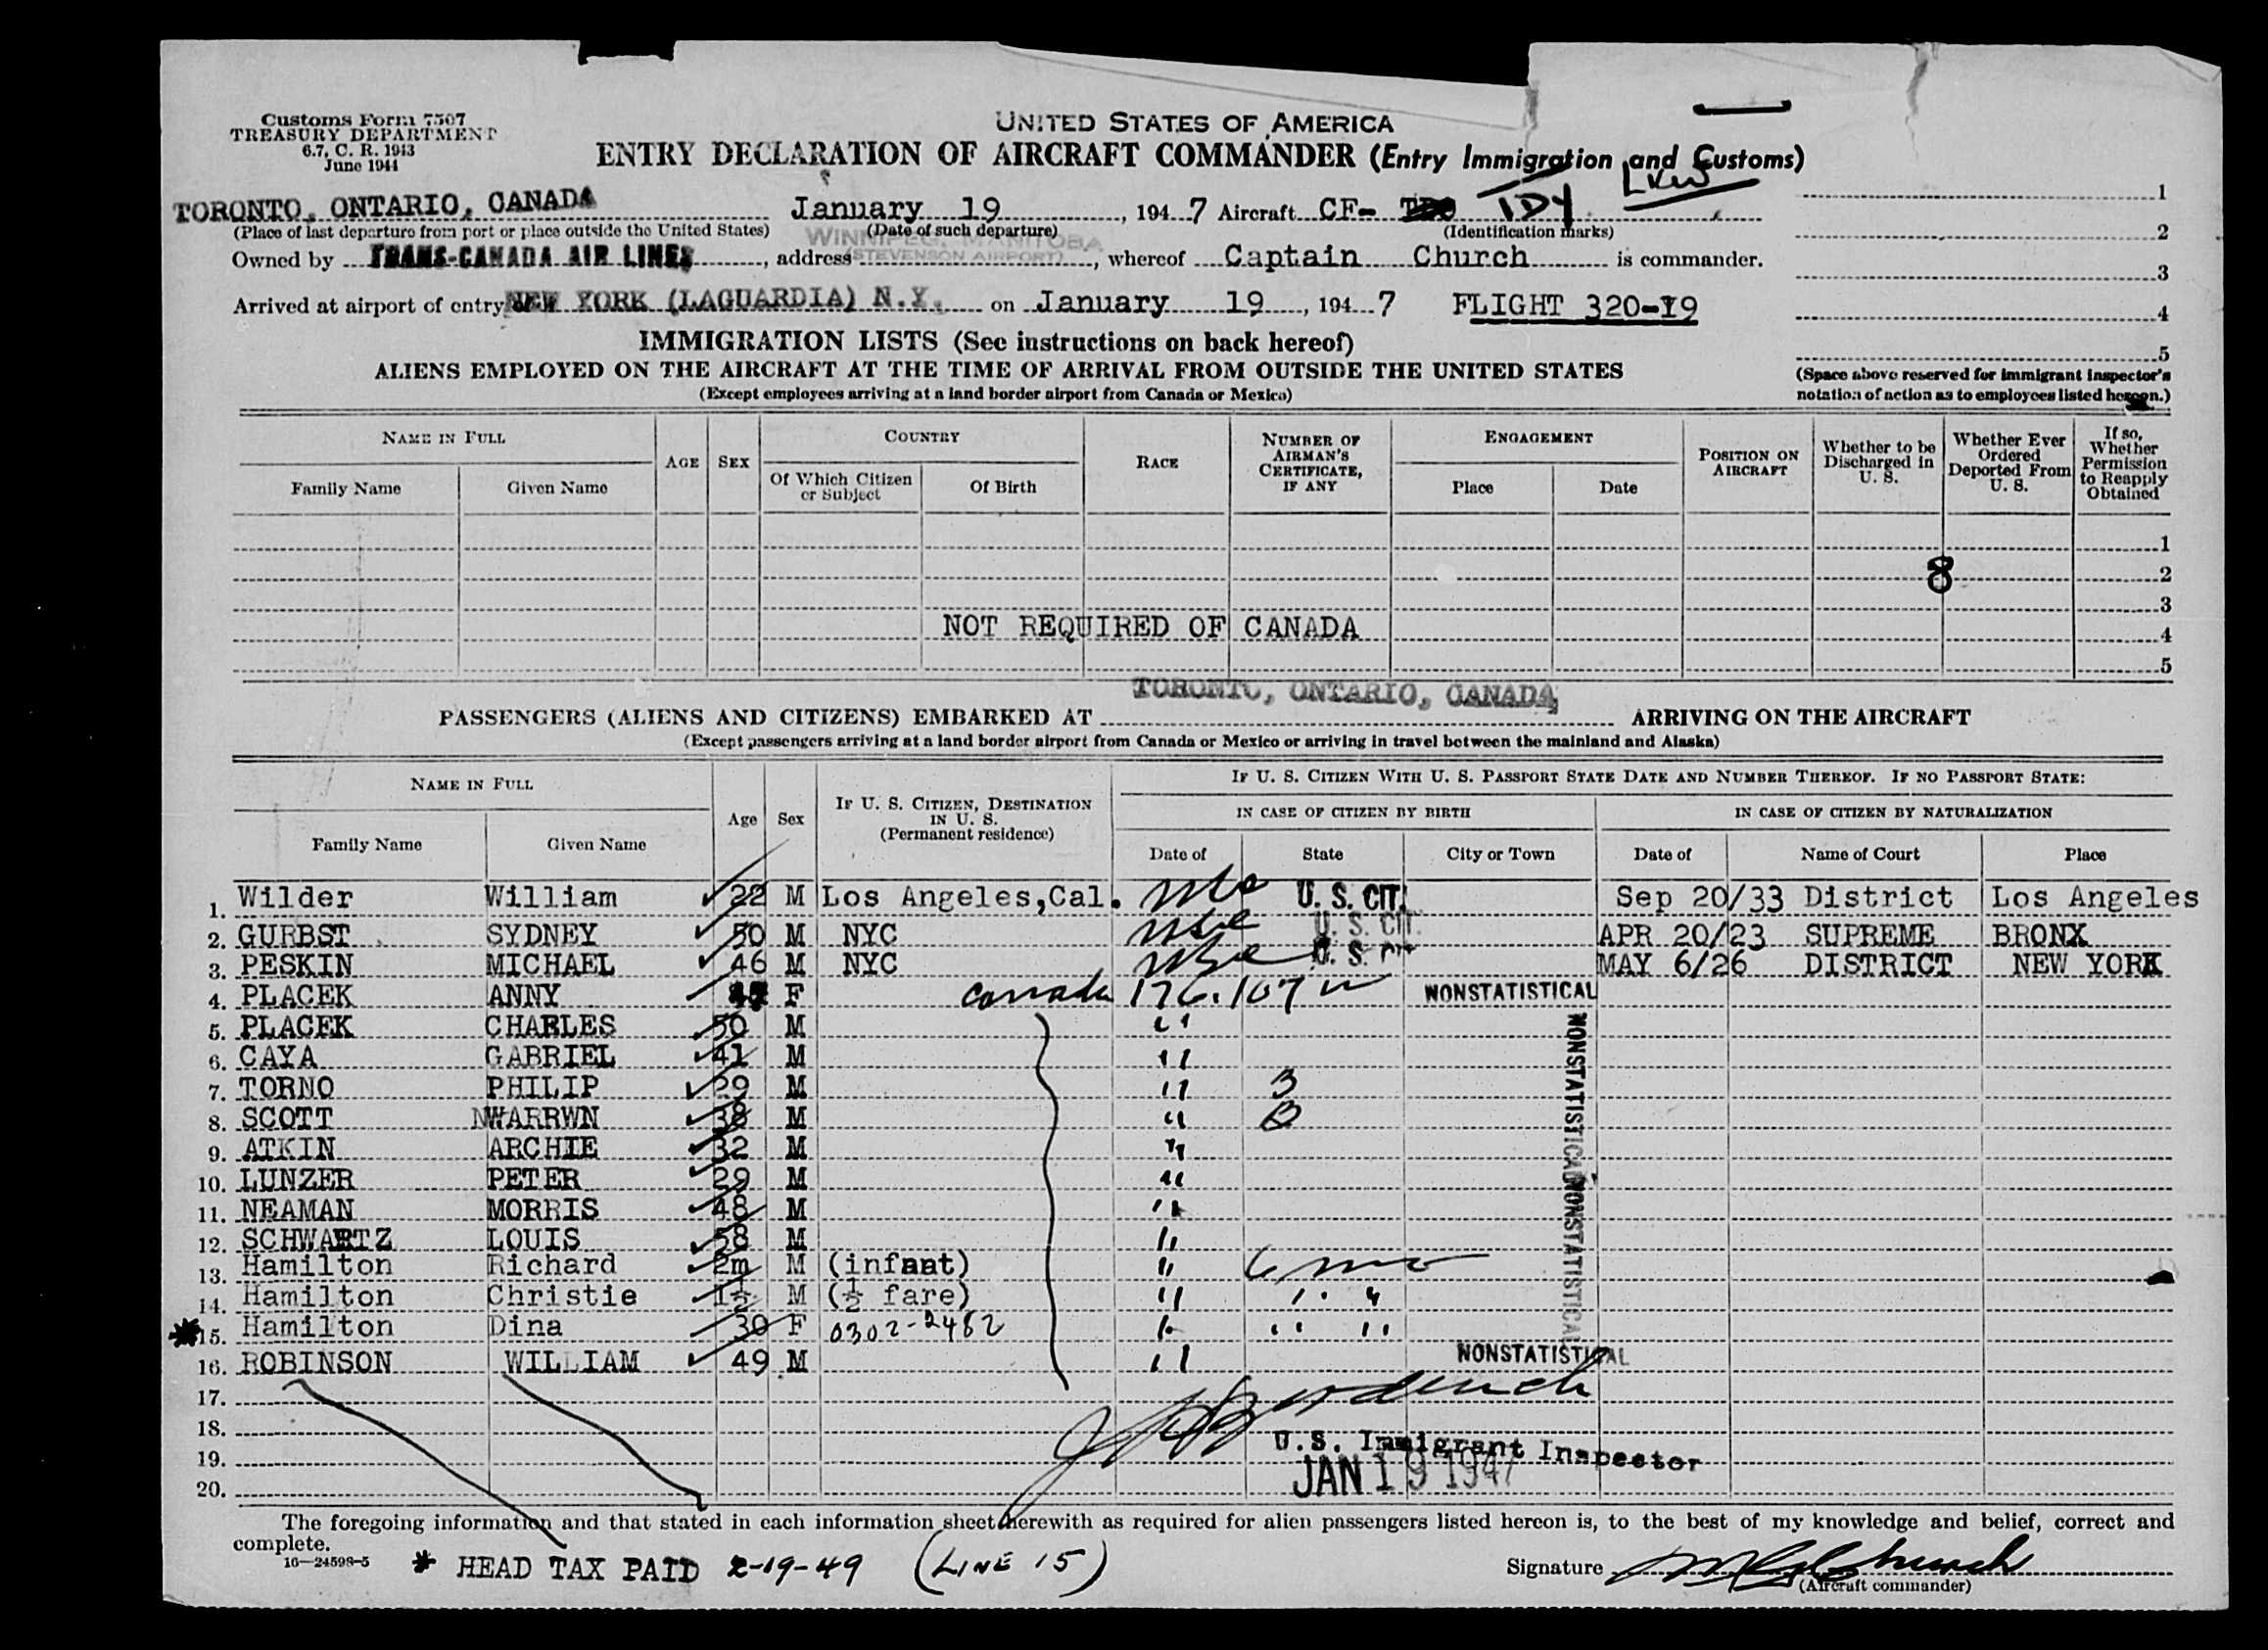 Customs Form 7507
TREASURY DEPARTMENT
6.7, C. R. 1943
June 1944
UNITED STATES OF AMERICA
ENTRY DECLARATION OF AIRCRAFT COMMANDER (Entry Immigration and Customs)
TORONTO, ONTARIO, CANADA January 19, 1947 Aircraft CF- TDY LKW 1
(Place of last departure from port or place outside the United States) (Date of such departure) (Identification marks) 2
WINNIPEG, MANITOBA
(STEVENSON AIRPORT)
Owned by TRANS-CANADA AIR LINES, address, whereof Captain Church is commander. 3
Arrived at airport of entry NEW YORK (LAGUARDIA) N.Y. on January 19, 1947 FLIGHT 320-19 4
IMMIGRATION LISTS (See instructions on back hereof) 5
ALIENS EMPLOYED ON THE AIRCRAFT AT THE TIME OF ARRIVAL FROM OUTSIDE THE UNITED STATES
(Except employees arriving at a land border airport from Canada or Mexico)
(Space above reserved for immigrant inspector's
notation of action as to employees listed hereon.)
NAME IN FULL AGE SEX COUNTRY RACE NUMBER OF AIRMAN'S CERTIFICATE, IF ANY ENGAGEMENT POSITION ON AIRCRAFT Whether to be Discharged in U. S. Whether Ever Ordered Deported From U. S. If so, Whether Permission to Reapply Obtained
Family Name Given Name Of Which Citizen or Subject Of Birth Place Date
1
8 2
3
NOT REQUIRED OF CANADA 4
5
TORONTO, ONTARIO, CANADA
PASSENGERS (ALIENS AND CITIZENS) EMBARKED AT ARRIVING ON THE AIRCRAFT
(Except passengers arriving at a land border airport from Canada or Mexico or arriving in travel between the mainland and Alaska)
NAME IN FULL Age Sex IF U. S. CITIZEN, DESTINATION IN U. S. (Permanent residence) IF U. S. CITIZEN WITH U. S. PASSPORT STATE DATE AND NUMBER THEREOF. IF NO PASSPORT STATE:
IN CASE OF CITIZEN BY BIRTH IN CASE OF CITIZEN BY NATURALIZATION
Family Name Given Name Date of State City or Town Date of Name of Court Place
1. Wilder William 22 M Los Angeles,Cal. U. S. CIT. Sep 20/33 District Los Angeles
2. GURBST SYDNEY 50 M NYC U. S. CIT. APR 20/23 SUPREME BRONX
3. PESKIN MICHAEL 46 M NYC U. S. CIT MAY 6/26 DISTRICT NEW YORK
4. PLACEK ANNY F Canada 176.107 NONSTATISTICAL
5. PLACEK CHARLES 50 M "
6. CAYA GABRIEL 41 M "
7. TORNO PHILIP 29 M " B
8. SCOTT NWARRWN 38 M " B
9. ATKIN ARCHIE 32 M "
10. LUNZER PETER 29 M "
11. NEAMAN MORRIS 48 M "
12. SCHWARTZ LOUIS 58 M "
13. Hamilton Richard 2m M (infant) " 6 mo
14. Hamilton Christie 1½ M (½ fare) " " "
*15. Hamilton Dina 30 F 0302-2482 " " "
16. ROBINSON WILLIAM 49 M " NONSTATISTICAL
NONSTATISTICAL NONSTATISTICAL
17.
18.
U.S. Immigrant Inspector
19.
JAN 19 1947
20.
The foregoing information and that stated in each information sheet herewith as required for alien passengers listed hereon is, to the best of my knowledge and belief, correct and
complete.
16—24598-5 * HEAD TAX PAID 2-19-49 (LINE 15) Signature Church
(Aircraft commander)